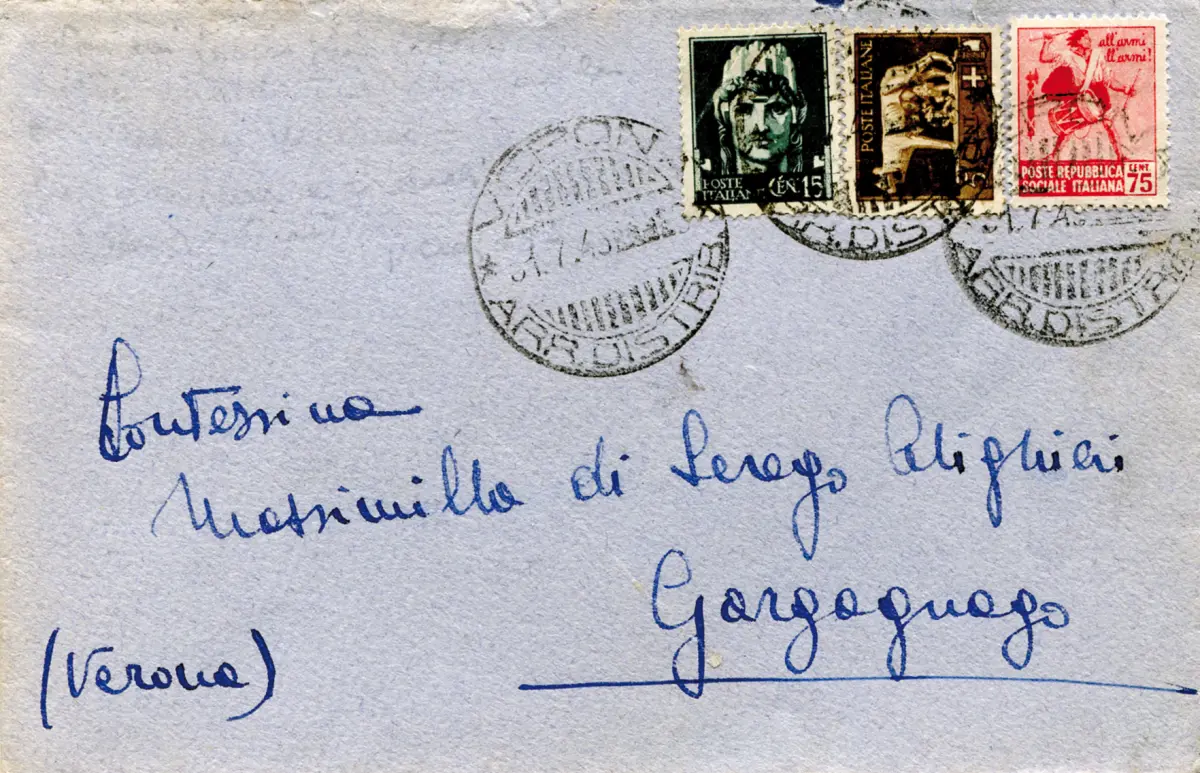 POSTE
ITALIANE
CEN. 15
POSTE ITALIANE
all'armi
all'armi!
POSTE REPUBBLICA
SOCIALE ITALIANA
CENT.
75
ARR. DISTRIB
R. DIS
ARR. DISTRIB
Contessina
Massimilla di Serego Alighieri
Gargagnago
(Verona)